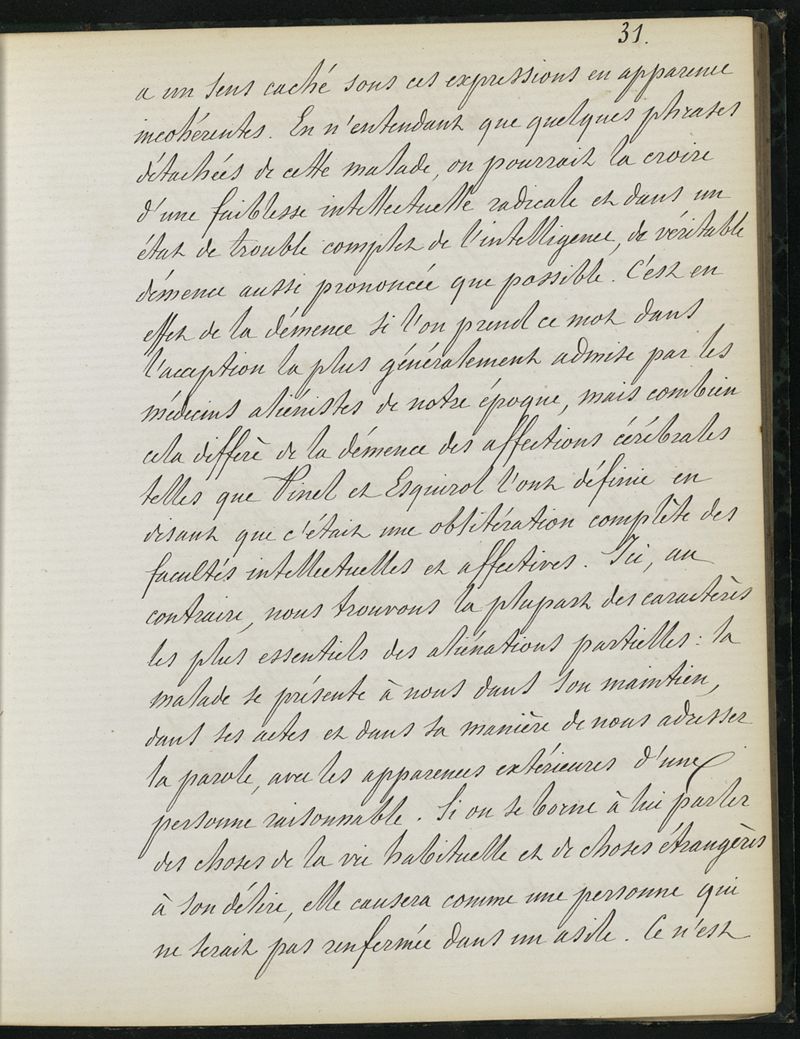 31.
a un sens caché sous ces expressions en apparence
incohérentes. En n'entendant que quelques phrases
détachées de cette malade, on pourrait la croire
d'une faiblesse intellectuelle radicale et dans un
état de trouble complet de l'intelligence, de véritable
démence aussi prononcée que possible. C'est en
effet de la démence si l'on prend ce mot dans
l'acception la plus généralement admise par les
médecins aliénistes de notre époque, mais combien
cela diffère de la démence des affections cérébrales
telles que Pinel et Esquirol l'ont définie en
disant que c'était une oblitération complète des
facultés intellectuelles et affectives. Ici, au
contraire, nous trouvons la plupart des caractères
les plus essentiels des aliénations partielles : la
malade se présente à nous dans son maintien,
dans ses actes et dans sa manière de nous adresser
la parole, avec les apparences extérieures d'une
personne raisonnable. Si on se borne à lui parler
des choses de la vie habituelle et de choses étrangères
à son délire, elle causera comme une personne qui
ne serait pas renfermée dans un asile. Ce n'est